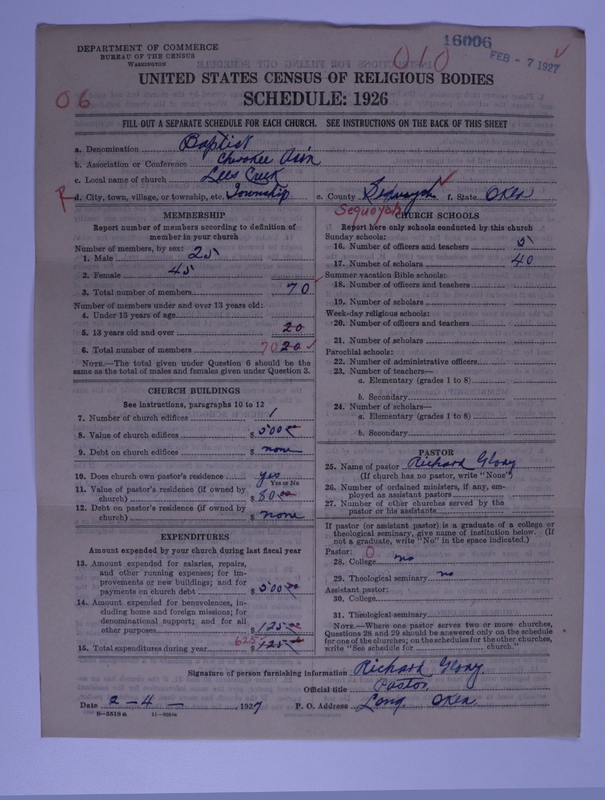 DEPARTMENT OF COMMERCE
BUREAU OF THE CENSUS
WASHINGTON
16006
FEB - 7 1927
010
UNITED STATES CENSUS OF RELIGIOUS BODIES
06
SCHEDULE: 1926
FILL OUT A SEPARATE SCHEDULE FOR EACH CHURCH. SEE INSTRUCTIONS ON THE BACK OF THIS SHEET
a. Denomination Baptist
b. Association or Conference Cherokee Ass'n
c. Local name of church Lees Creek
R d. City, town, village, or township, etc. Township e. County Sequoyah f. State Okla
Sequoyah
MEMBERSHIP
Report number of members according to definition of
member in your church
Number of members, by sex:
1. Male 25
2. Female 45
3. Total number of members 70
Number of members under and over 13 years old:
4. Under 13 years of age
5. 13 years old and over 20
6. Total number of members 70 20
NOTE.—The total given under Question 6 should be the
same as the total of males and females given under Question 3.
CHURCH BUILDINGS
See instructions, paragraphs 10 to 12
7. Number of church edifices 1
8. Value of church edifices $ 500 00
9. Debt on church edifices $ none
10. Does church own pastor's residence yes
Yes or No
11. Value of pastor's residence (if owned by
church) $ 80 00
12. Debt on pastor's residence (if owned by
church) $ none
EXPENDITURES
Amount expended by your church during last fiscal year
13. Amount expended for salaries, repairs,
and other running expenses; for im-
provements or new buildings; and for
payments on church debt $ 500 00
14. Amount expended for benevolences, in-
cluding home and foreign missions; for
denominational support; and for all
other purposes $ 125 00
625
15. Total expenditures during year $ 125 00
CHURCH SCHOOLS
Report here only schools conducted by this church
Sunday schools:
16. Number of officers and teachers 5
17. Number of scholars 40
Summer vacation Bible schools:
18. Number of officers and teachers
19. Number of scholars
Week-day religious schools:
20. Number of officers and teachers
21. Number of scholars
Parochial schools:
22. Number of administrative officers
23. Number of teachers—
a. Elementary (grades 1 to 8)
b. Secondary
24. Number of scholars—
a. Elementary (grades 1 to 8)
b. Secondary
PASTOR
25. Name of pastor Richard Glory
(If church has no pastor, write "None")
26. Number of ordained ministers, if any, em-
ployed as assistant pastors
27. Number of other churches served by the
pastor or his assistants
If pastor (or assistant pastor) is a graduate of a college or
theological seminary, give name of institution below. (If
not a graduate, write "No" in the space indicated.)
Pastor: 0
28. College no
29. Theological seminary no
Assistant pastor:
30. College
31. Theological seminary
NOTE.—Where one pastor serves two or more churches,
Questions 28 and 29 should be answered only on the schedule
for one of the churches; on the schedules for the other churches,
write "See schedule for church."
Signature of person furnishing information Richard Glory
Official title Pastor
Date 2-4- 1927 P. O. Address Long Okla